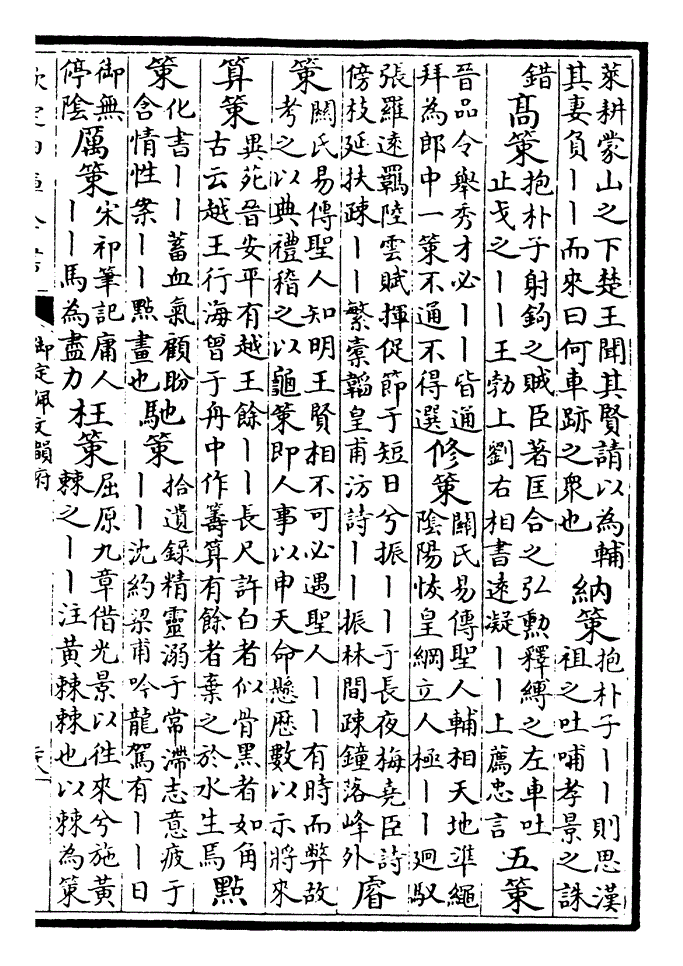 萊耕蒙山之下楚王聞其賢請以為輔其妻負丨丨而來曰何車跡之衆也 納策 抱朴子丨丨則思漢祖之吐哺孝景之誅
錯 高策 抱朴子射鈎之賊臣著匡合之弘勲釋縛之左車吐止戈之丨丨王勃上劉右相書遠凝丨丨上薦忠言 五策
晉品令舉秀才必丨丨皆通拜為郎中一策不通不得選 修策 關氏易傳聖人輔相天地準繩陰陽恢皇綱立人極丨丨迥馭
張羅遠羈陸雲賦揮促節于短日兮振丨丨于長夜梅堯臣詩傍枝延扶疎丨丨繁橐韜皇甫汸詩丨丨振林間疎鐘落峰外 睿
策 關氏易傳聖人知明王賢相不可必遇聖人丨丨有時而弊故考之以典禮稽之以龜策即人事以申天命懸歷數以示將來
算策 異苑晉安平有越王餘丨丨長尺許白者似骨黑者如角古云越王行海曾于舟中作籌算有餘者棄之於水生焉 點
策 化書丨丨蓄血氣顧盼含情性案丨丨點畫也 馳策 拾遺錄精靈溺于常滯志意疲于丨丨沈約梁甫吟龍駕有丨丨日
御無停陰 厲策 宋祁筆記庸人丨丨馬為盡力 枉策 屈原九章借光景以往來兮施黃棘之丨丨注黃棘棘也以棘為策
御定佩文韻府